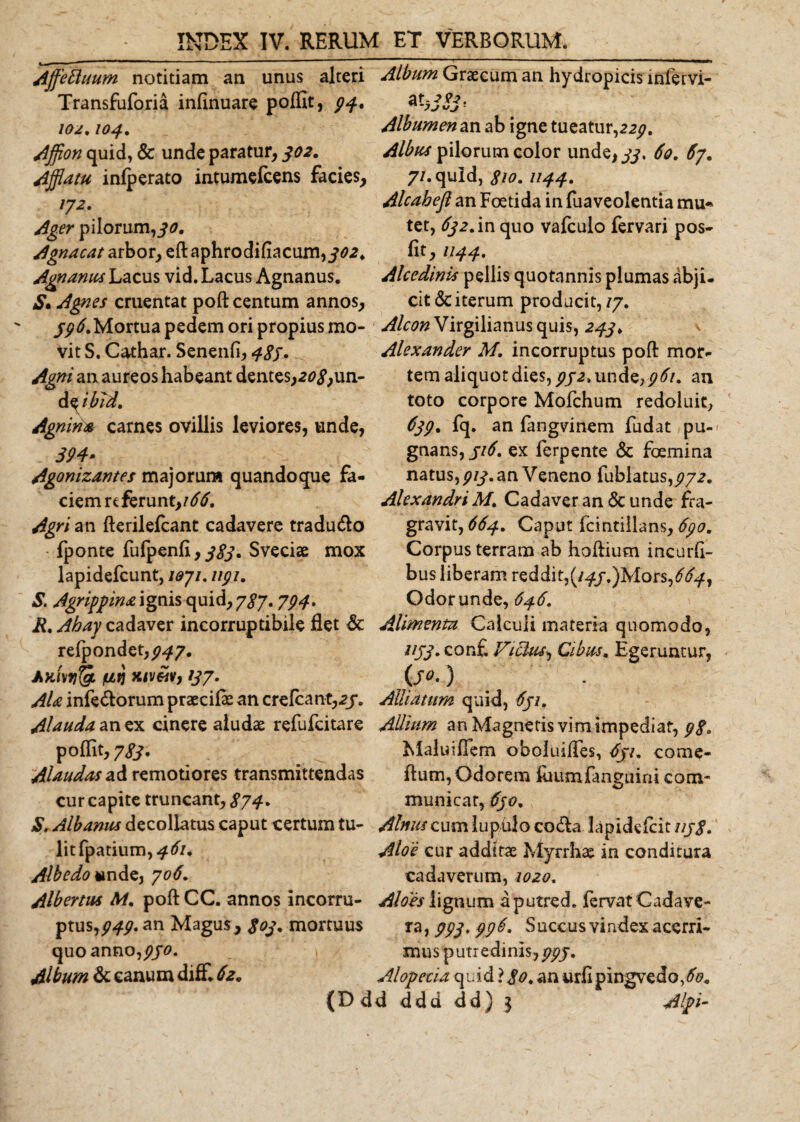 INDEX IV. RERUM ET VERBORUM.
Affectuum notitiam an unus alteri
Transfusoriâ insinuare possit, 94.
102. 104.
Affion quid, & unde paratur, 302.
Afflatu insperato intumescens facies,
172.
Ager pilorum, 30.
Agnacat arbor, est aphrodisiacum, 302.
Agnanus Lacus vid. Lacus Agnanus.
S. Agnes cruentat post centum annos,
596. Mortua pedem ori propius mo-
vit S. Cathar. Senensi, 485.
Agni an aureos habeant dentes, 208, un-
de ibid.
Agninæ carnes ovillis leviores, unde,
394.
Agonizantes majorum quandoque fa-
ciem referunt, 166.
Agri an sterilescant cadavere traducto
sponte suspensi, 383. Sveciæ mox
lapidescunt, 1071. 1191.
S. Agrippinæ ignis quid, 787. 794.
R. Ahay cadaver incorruptibile flet &
respondet, 947.
Ἀκίνητα μὴ κινεῖν, 137.
Alæ insectorum præcisæ an crescant, 25.
Alauda an ex cinere aludæ resuscitare
possit, 783.
Alaudas ad remotiores transmittendas
cur capite truncant, 874.
S. Albanus decollatus caput certum tu-
lit spatium, 461.
Albedo unde, 706.
Albertus M. post CC. annos incorru-
ptus, 949. an Magus, 803. mortuus
quo anno, 950.
Album & canum diff. 62.
Album Græcum an hydropicis inservi-
at, 383.
Albumen an ab igne tueatur, 229.
Albus pilorum color unde, 33. 60. 67.
71. quid, 810. 1144.
Alcahest an Fœtida in suaveolentia mu-
tet, 632. in quo vasculo servari pos-
sit, 1144.
Alcedinis pellis quotannis plumas abji-
cit & iterum producit, 17.
Alcon Virgilianus quis, 243.
Alexander M. incorruptus post mor-
tem aliquot dies, 952. unde, 961. an
toto corpore Moschum redoluit,
639. sq. an sangvinem sudat pu-
gnans, 516. ex serpente & fœmina
natus, 913. an Veneno sublatus, 972.
Alexandri M. Cadaver an & unde fra-
gravit, 664. Caput scintillans, 690.
Corpus terram ab hostium incursi-
bus liberam reddit, (145.) Mors, 664,
Odor unde, 646.
Alimenta Calculi materia quomodo,
1153. conf. Victus, Cibus. Egeruntur,
(50.)
Alliatum quid, 651.
Allium an Magnetis vim impediat, 98.
Maluissem oboluisses, 651. come-
stum, Odorem suum sanguini com-
municat, 650.
Alnus cum lupulo cocta lapidescit 1158.
Aloë cur additæ Myrrhæ in conditura
cadaverum, 1020.
Aloës lignum â putred. servat Cadave-
ra, 993. 996. Succus vindex acerri-
mus putredinis, 995.
Alopecia quid? 80. an ursi pingvedo, 60.
(D dd ddd dd) 3 Alpi-